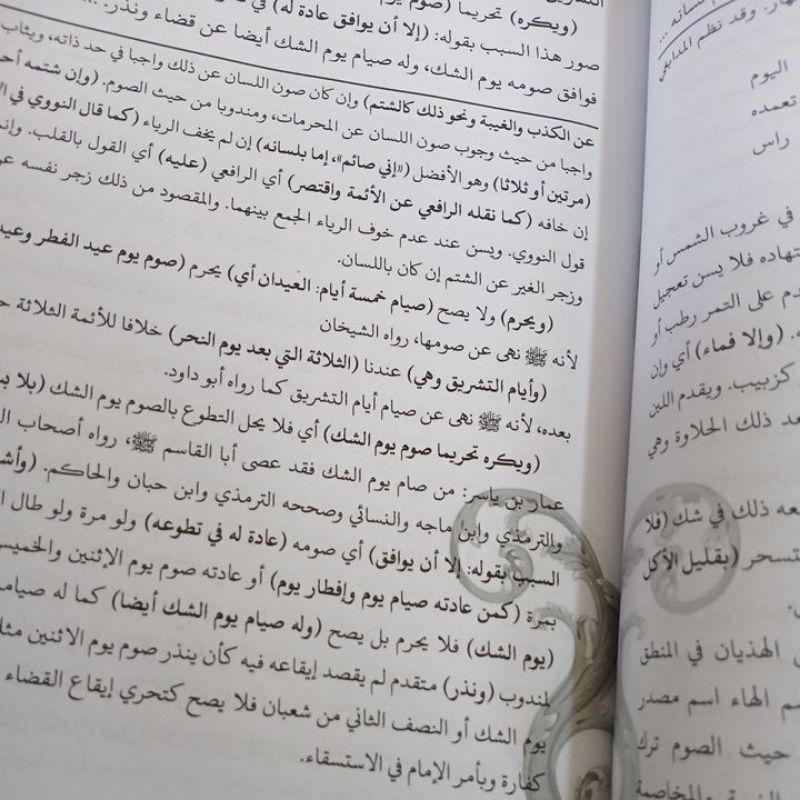 (ويكره) تحريما (صوم يوم
صور هذا السبب بقوله: (إلا أن يوافق عادة له) في
فوافق صومه يوم الشك، وله صيام يوم الشك أيضا عن قضاء ونذر.
عن الكذب والغيبة ونحو ذلك كالشتم) وإن كان صون اللسان عن ذلك واجبا في حد ذاته، ويثاب
واجبا من حيث وجوب صون اللسان عن المحرمات، ومندوبا من حيث الصوم. (وإن شتمه
(مرتين أو ثلاثا) وهو الأفضل («إني صائم»، إما بلسانه) إن لم يخف الرياء (كما قال النووي في
إن خافه (كما نقله الرافعي عن الأئمة واقتصر) أي الرافعي (عليه) أي القول بالقلب.
قول النووي. ويسن عند عدم خوف الرياء الجمع بينهما. والمقصود من ذلك زجر نفسه
وزجر الغير عن الشتم إن كان باللسان.
(ويحرم) ولا يصح (صيام خمسة أيام: العيدان أي) يحرم (صوم يوم عيد الفطر
لأنه ﷺ نهى عن صومها، رواه الشيخان
(وأيام التشريق وهي) عندنا (الثلاثة التي بعد يوم النحر) خلافا للأئمة الثلاثة
بعده، لأنه ﷺ نهى عن صيام أيام التشريق كما رواه أبو داود.
(ويكره تحريما صوم يوم الشك) أي فلا يحل التطوع بالصوم يوم الشك (بلا
عمار بن ياسر: من صام يوم الشك فقد عصى أبا القاسم ﷺ، رواه أصحاب
والترمذي وابن ماجه والنسائي وصححه الترمذي وابن حبان والحاكم.
السبب بقوله: إلا أن يوافق) أي صومه (عادة له في تطوعه) ولو مرة ولو طال
بمرة (كمن عادته صيام يوم وإفطار يوم) أو عادته صوم يوم الإثنين والخميس
(يوم الشك) فلا يحرم بل يصح (وله صيام يوم الشك أيضا) كما له
لمندوب (ونذر) متقدم لم يقصد إيقاعه فيه كأن ينذر صوم يوم الاثنين مثلا
يوم الشك أو النصف الثاني من شعبان فلا يصح كتحري إيقاع القضاء
كفارة وبأمر الإمام في الاستسقاء.
وقد نظم المدابغي
اليوم
تعمده
راس
في غروب الشمس أو
فلا يسن تعجيل
على التمر رطب أو
(وإلا فماء) أي وإن
كزبيب. ويقدم اللبن
بعد ذلك الحلاوة وهي
معه ذلك في شك (فلا
(بقليل الأكل
الهذيان في المنطق
الهاء اسم مصدر
حيث الصوم ترك
والمخاصمة